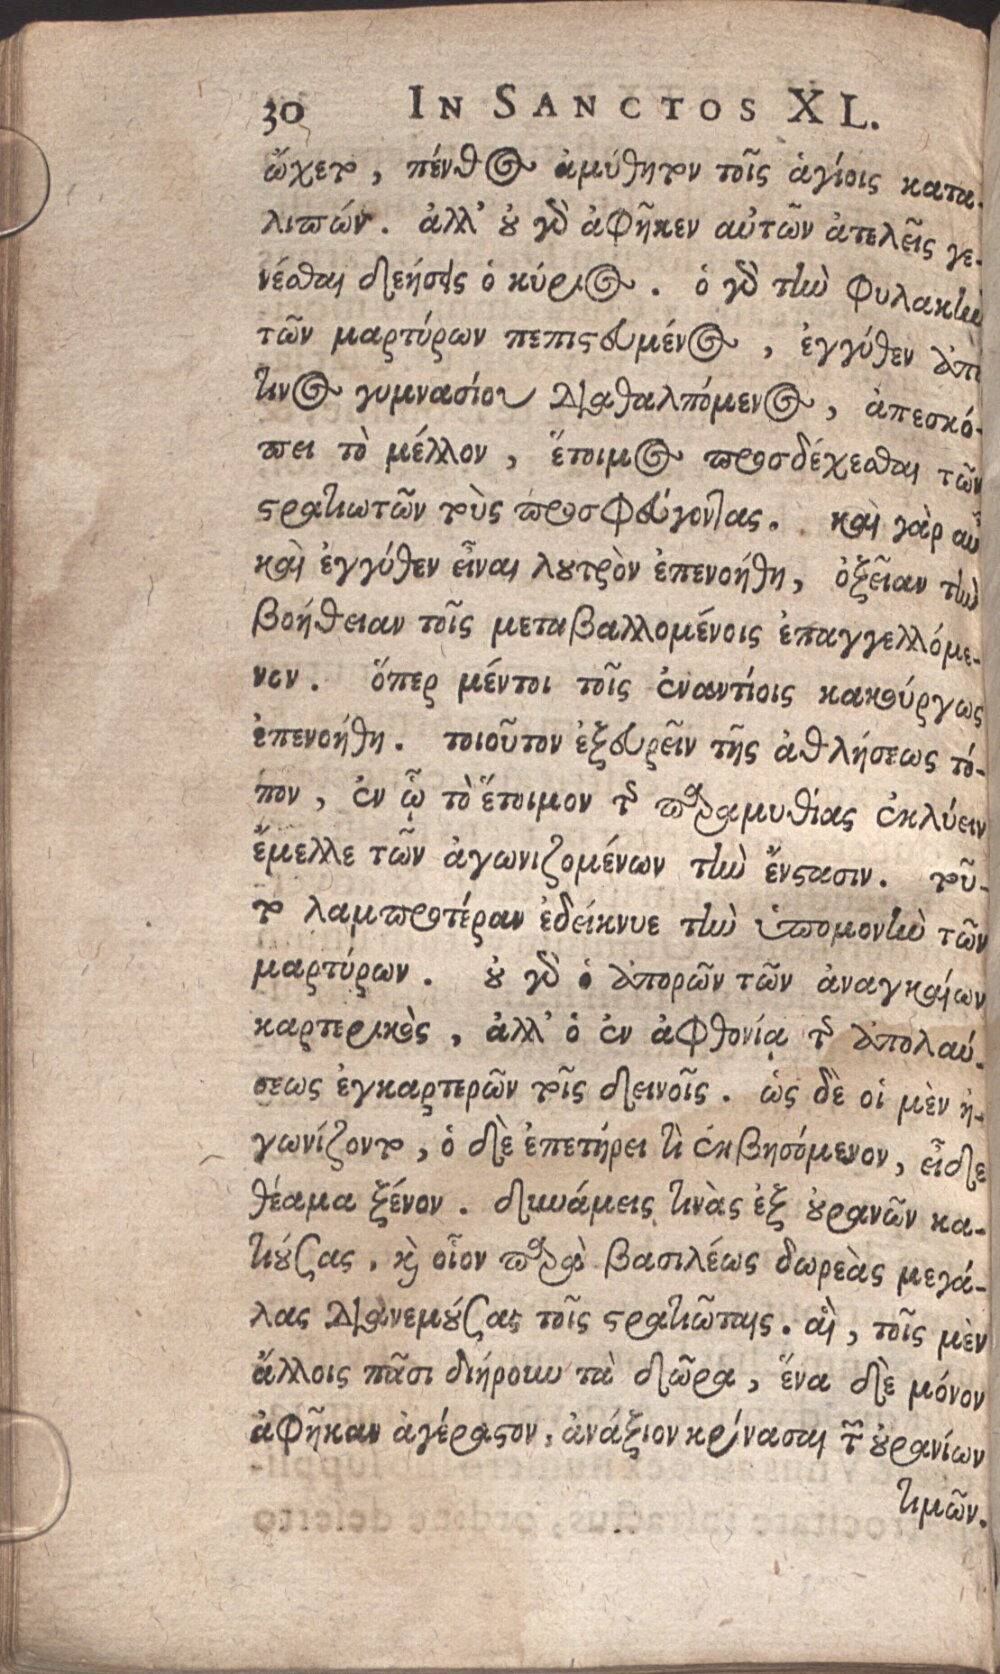 30 IN SANCTOS XL.
ᾤχετο, πένθος ἀμύθητον τοῖς ἁγίοις κατα-
λιπών. ἀλλ' οὐ γὰρ ἀφῆκεν αὐτῶν ἀτελεῖς γε-
νέσθαι δεήσεις ὁ κύριος. ὁ γὰρ τὴν φυλακὴν
τῶν μαρτύρων πεπιστευμένος, ἐγγύθεν ἀπό
τινος γυμνασίου διαθαλπόμενος, ἀπεσκό-
πει τὸ μέλλον, ἕτοιμος προσδέχεσθαι τῶν
στρατιωτῶν τοὺς προσφεύγοντας. καὶ γὰρ αὖ
καὶ ἐγγύθεν εἶναι λουτρὸν ἐπενοήθη, ὀξεῖαν τὴν
βοήθειαν τοῖς μεταβαλλομένοις ἐπαγγελλόμε-
νον. ὅπερ μέντοι τοῖς ἐναντίοις κακούργως
ἐπενοήθη. τοιοῦτον ἐξευρεῖν τῆς ἀθλήσεως τό-
πον, ἐν ᾧ τὸ ἕτοιμον τῆς παραμυθίας ἐκλύειν
ἔμελλε τῶν ἀγωνιζομένων τὴν ἔνστασιν. τοῦ-
το λαμπροτέραν ἐδείκνυε τὴν ὑπομονὴν τῶν
μαρτύρων. οὐ γὰρ ὁ ἀπορῶν τῶν ἀναγκαίων
καρτερικὸς, ἀλλ' ὁ ἐν ἀφθονίᾳ τῆς ἀπολαύ-
σεως ἐγκαρτερῶν τοῖς δεινοῖς. ὡς δὲ οἱ μὲν ἠ-
γωνίζοντο, ὁ δὲ ἐπετήρει τὶ ἐκβησόμενον, εἶδε
θέαμα ξένον. δυνάμεις τινὰς ἐξ οὐρανῶν κα-
τιούσας, καὶ οἷον παρὰ βασιλέως δωρεὰς μεγά-
λας διανεμούσας τοῖς στρατιώταις. αἳ, τοῖς μὲν
ἄλλοις πᾶσι διῄρουν τὰ δῶρα, ἕνα δὲ μόνον
ἀφῆκαν ἀγέραστον, ἀνάξιον κρίνασαι τῶν οὐρανίων
τιμῶν.